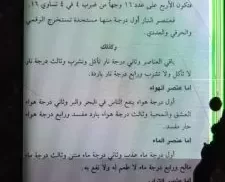 فتكون الأربع على عدد ١٦ وجهاً من ضرب ٤ في ٤ تساوي ١٦.
فعنصر النار أول درجة منها مستجدة تستخرج الرقمي
والحرفي والعددي.
وكذلك
باقي العناصر وثاني درجة نار تأكل وتشرب وثالث درجة نار
لا تأكل ولا تشرب ورابع درجة نار باردة.
أما عنصر الهواء
أول درجة هواء ينفع الناس في البحر والبر وثاني درجة هواء
العشق والمحبة وثالث درجة هواء بارد مفسد ورابع درجة هواء
حار مفسد.
أما عنصر الماء
أول درجة ماء عذب وثاني درجة ماء منتن وثالث درجة ماء
مالح ورابع درجة ماء لا طعم له ولا نفع به.